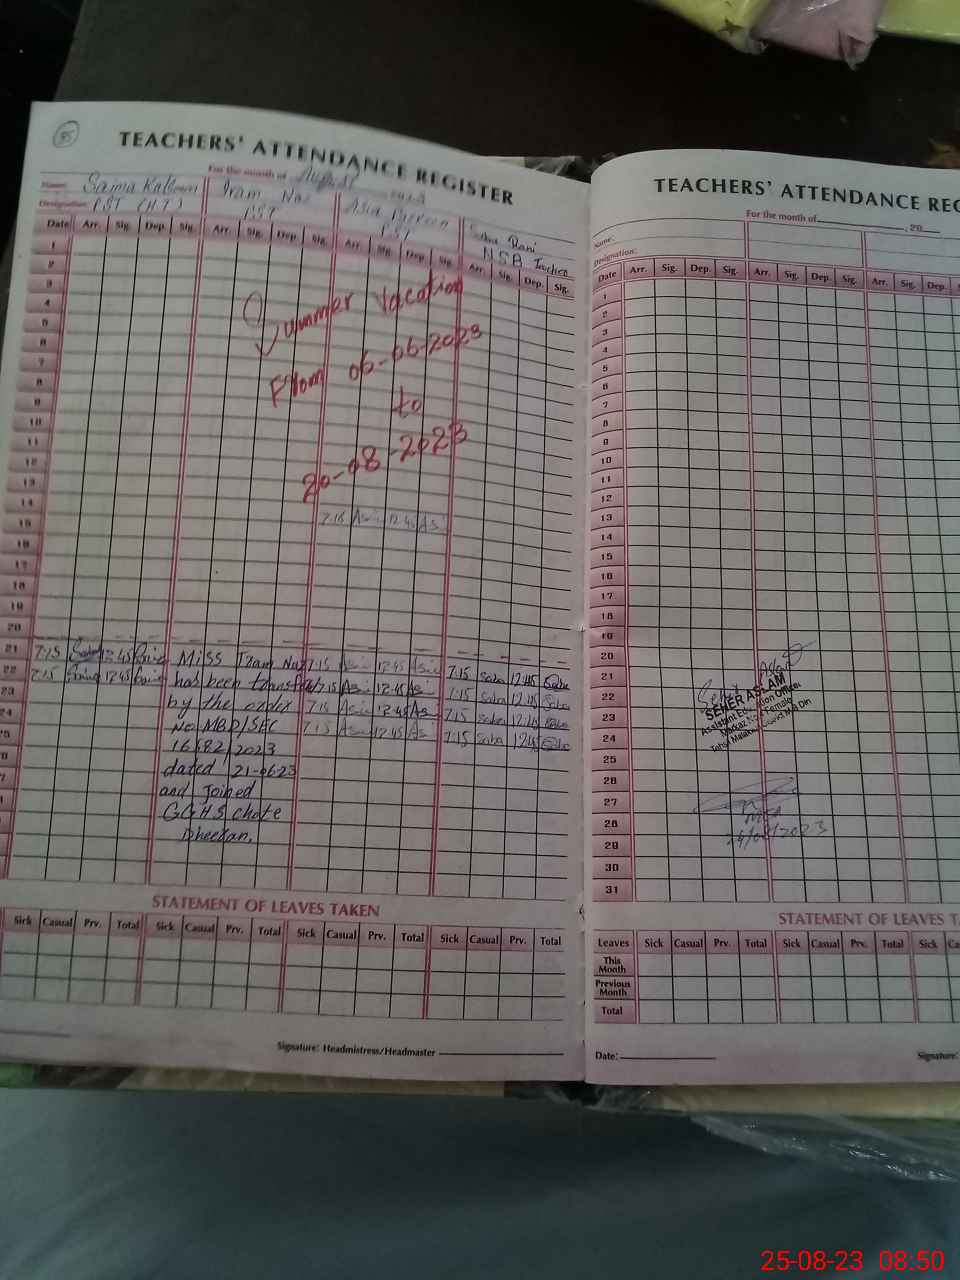 85
TEACHERS' ATTENDANCE REGISTER
For the month of August 2023
Name: Saima Kalsoom Iram Naz Asia Parveen Saba Rani
Designation: PST (H.T) PST PST NSB Teacher
Date Arr. Sig. Dep. Sig. Arr. Sig. Dep. Sig. Arr. Sig. Dep. Sig. Arr. Sig. Dep. Sig.
1
2
3
4
5
6
7
8
9
10
11
12
13
14
15
16
17
18
19
20
21
22
23
24
25
Summer Vacation
From 06-06-2023
to
20-08-2023
7:15 Asia 12:45 Asia
7:15 Saima 12:45 Saima Miss Iram Naz 7:15 Asia 12:45 Asia 7:15 Saba 12:45 Saba
7:15 Saima 12:45 Saima has been transfer 7:15 Asia 12:45 Asia 7:15 Saba 12:45 Saba
by the order 7:15 Asia 12:45 Asia 7:15 Saba 12:45 Saba
No. MBD/SEC 7:15 Asia 12:45 Asia 7:15 Saba 12:45 Saba
1682/2023
dated 21-06-23
and Joined
GGHS chote
Dheeran.
STATEMENT OF LEAVES TAKEN
Sick Casual Prv. Total Sick Casual Prv. Total Sick Casual Prv. Total Sick Casual Prv. Total
Signature: Headmistress/Headmaster
TEACHERS' ATTENDANCE REG
For the month of , 20
Name:
Designation:
Date Arr. Sig. Dep. Sig. Arr. Sig. Dep. Sig. Arr. Sig. Dep.
1
2
3
4
5
6
7
8
9
10
11
12
13
14
15
16
17
18
19
20
21
22
23
24
25
26
27
28
29
30
31
SEHER ASLAM
Assistant Education Officer
Markaz Female
Tehsil M.B Din
24/08/2023
STATEMENT OF LEAVES TA
Leaves Sick Casual Prv. Total Sick Casual Prv. Total Sick Ca
This Month
Previous Month
Total
Date: Signature:
25-08-23 08:50